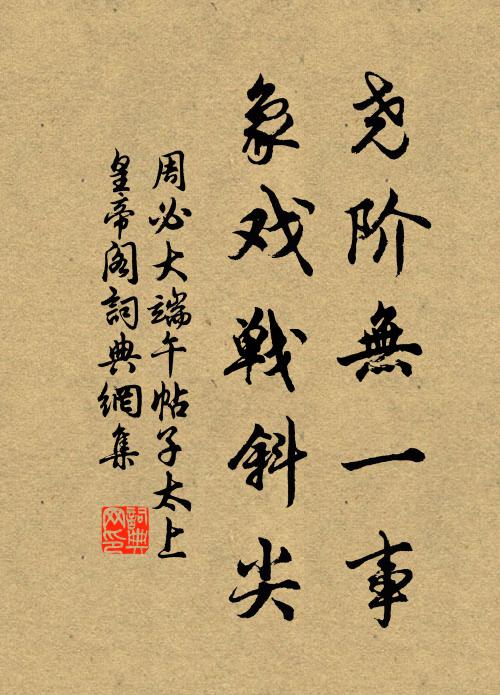 尧阶無一事
象戏戦斜尖
周必大端午帖子太上
皇帝阁詞典網集
詞典网印